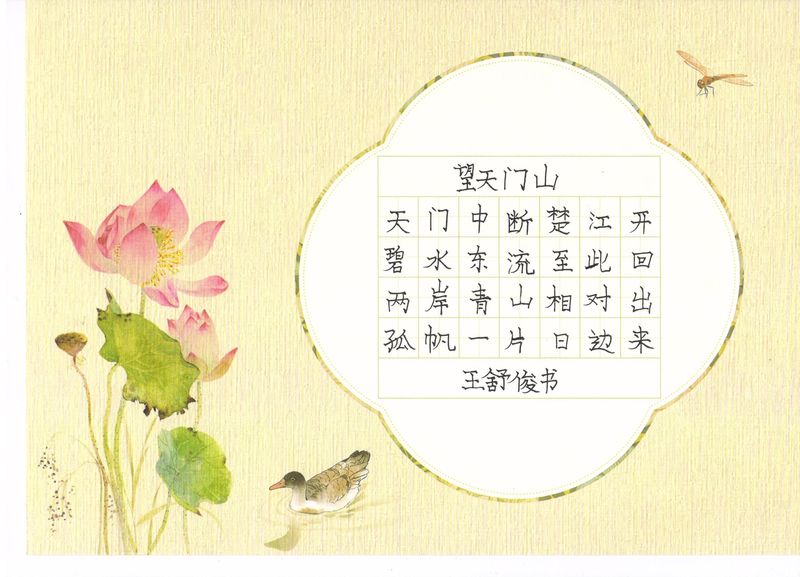 望天门山
天门中断楚江开
碧水东流至此回
两岸青山相对出
孤帆一片日边来
王舒俊书